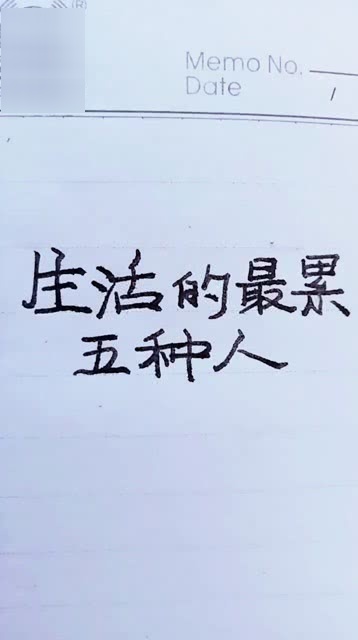 (R)
Memo No.
Date /
生活的最累
五种人